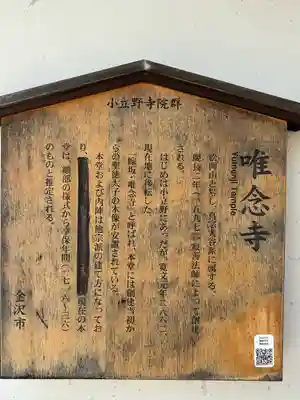 小立野寺院群
唯念寺
Yuinenji Temple
し、真宗大谷派に属する。
慶長二年(一五九七)
によって創建
される。
はじめは小立野にあったが、
現在地に移転した。
唯念寺」と呼ばれ、本堂には創建当初か
らの聖徳太子の木像が安置されている。
本堂および内陣は他宗派の建て方になってお
り、
現在の本
堂は、細部の様式から享保年間(一七一六~三六)
のものと推定される。
金沢市